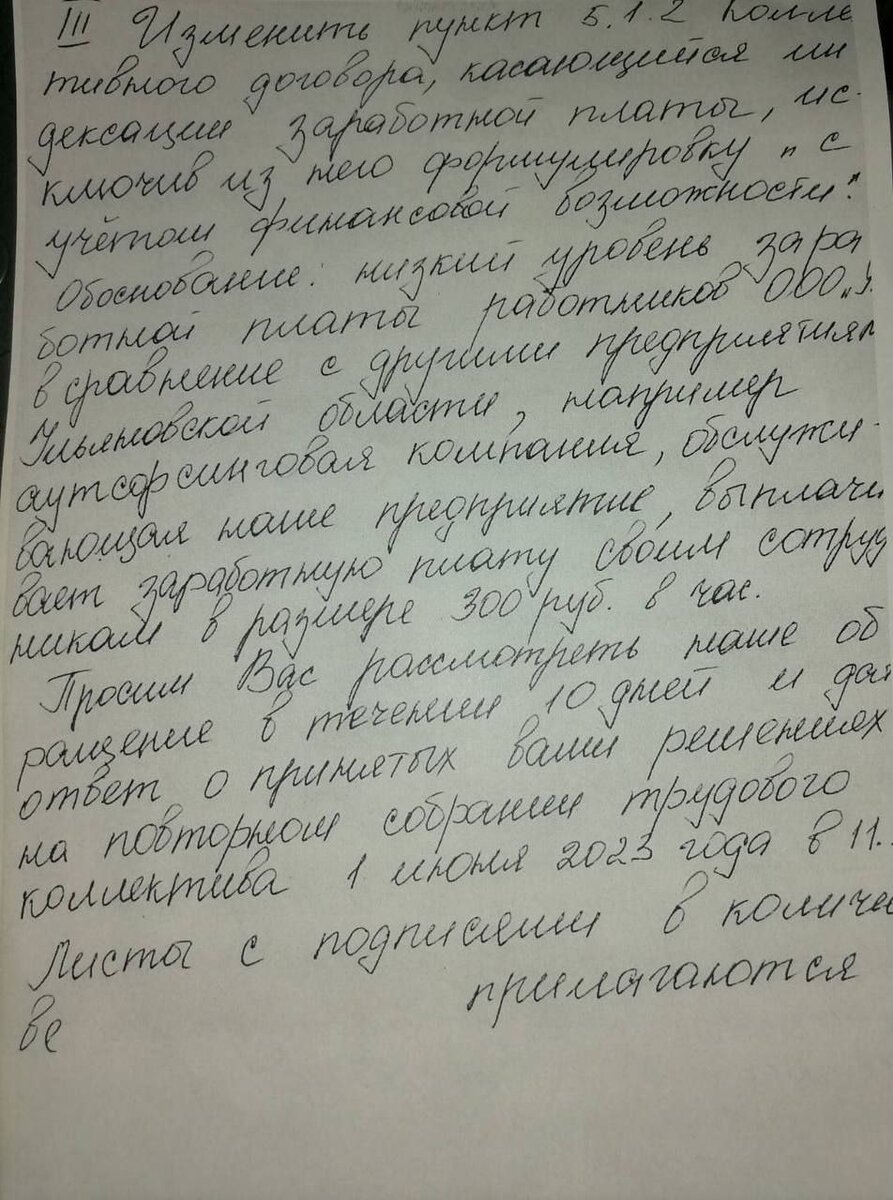 III Изменить пункт 5.1.2 колле
тивного договора, касающийся ин
дексации заработной платы, ис-
ключив из него формулировку "с
учётом финансовой возможности".
Обоснование: низкий уровень зара
ботной платы работников ООО „У
в сравнение с другими предприятиям
Ульяновской области, например
аутсорсинговая компания, обслужи-
вающая наше предприятие, выплачи
вает заработную плату своим сотруд
никам в размере 300 руб. в час.
Просим Вас рассмотреть наше об
ращение в течении 10 дней и дат
ответ о принятых вами решениях
на повторном собрании трудового
коллектива 1 июня 2023 года в 11.
Листы с подписями в количе
ве прилагаются